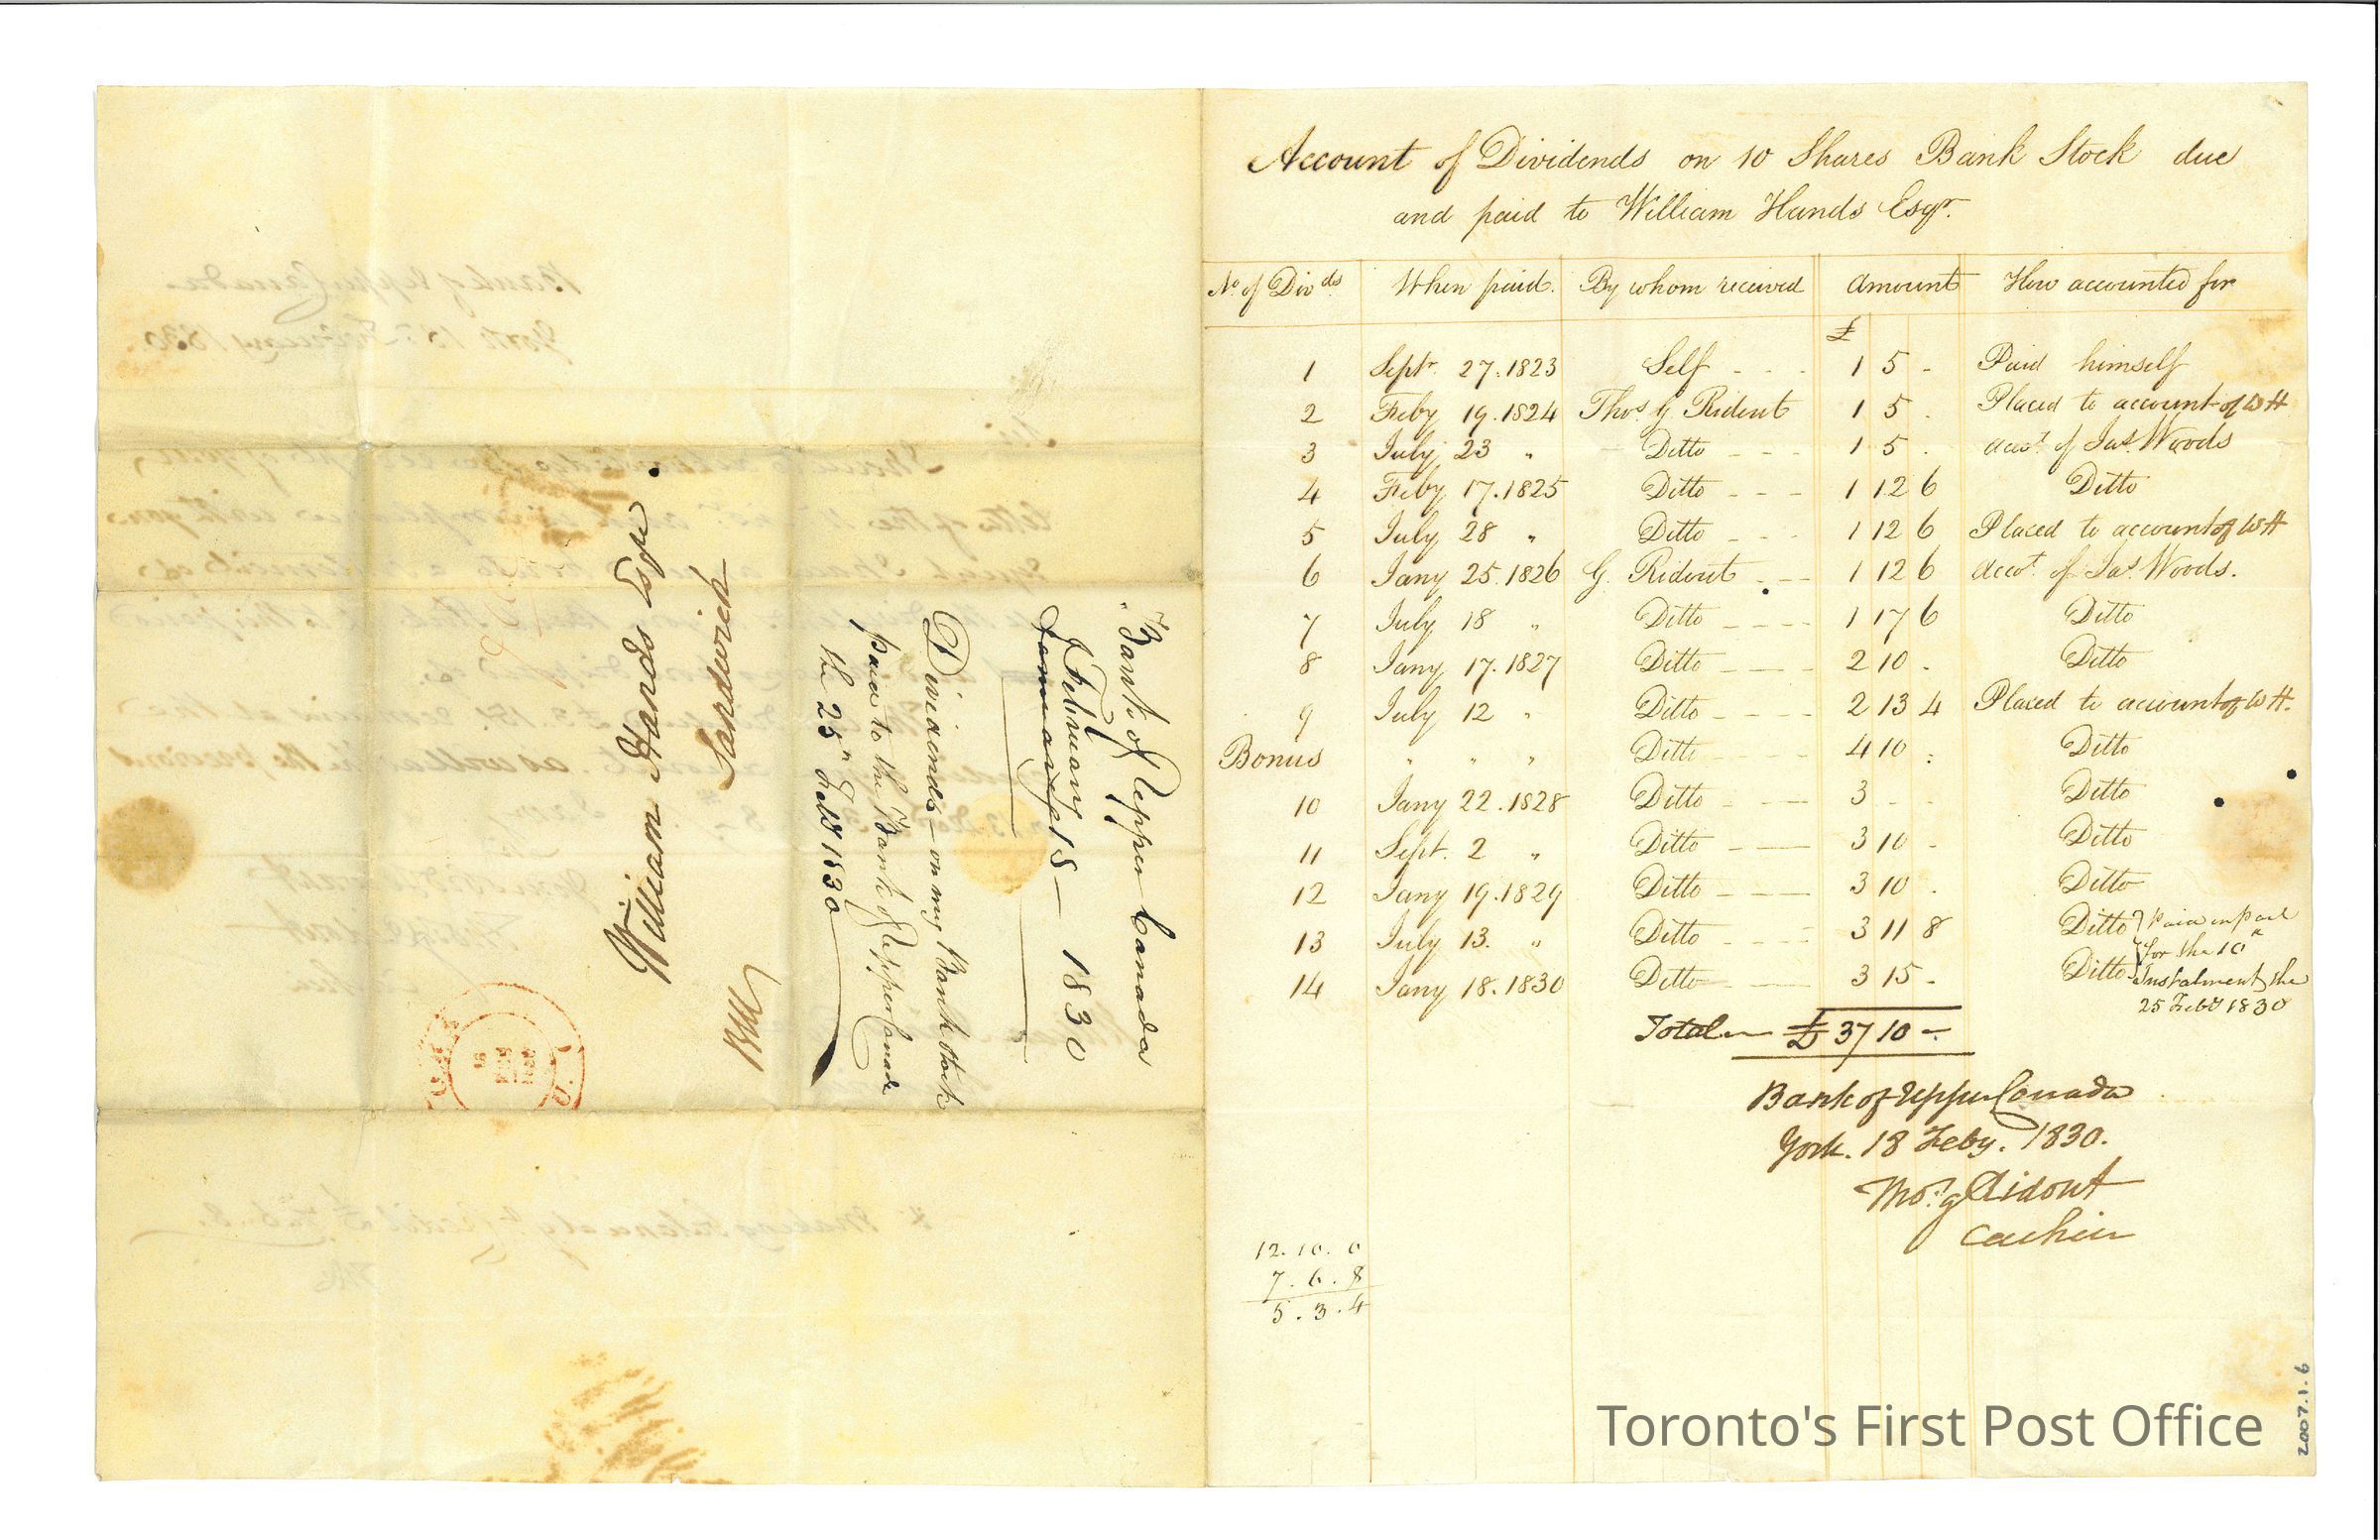 William Hands Esqr
Sandwich
Bank of Upper Canada
January February 18 — 1830
Dividends — on my Bank Stock
paid to the Bank of Upper Canada
the 25th Feby 1830
Account of Dividends on 10 Shares Bank Stock due
and paid to William Hands Esqr.
No of Divds When paid. By whom received Amount How accounted for
£
1 Septr. 27. 1823 Self - - - 1 5 - Paid himself
2 Feby 19. 1824 Thos G Ridout 1 5 . Placed to account of WH
3 July 23 " Ditto - - - 1 5 . accot. of Jas. Woods
4 Feby 17. 1825 Ditto - - - 1 12 6 Ditto
5 July 28 " Ditto - - - 1 12 6 Placed to account of WH
6 Jany 25. 1826 G. Ridout - - - 1 12 6 accot. of Jas. Woods.
7 July 18 " Ditto - - - - 1 17 6 Ditto
8 Jany 17. 1827 Ditto - - - 2 10 - Ditto
9 July 12 " Ditto - - - - 2 13 4 Placed to account of WH.
Bonus " " " Ditto - - - - 4 10 : Ditto
10 Jany 22. 1828 Ditto - - - 3 - - Ditto
11 Sept. 2 " Ditto - - - 3 10 - Ditto
12 Jany 19. 1829 Ditto - - - 3 10 . Ditto
13 July 13. " Ditto - - - 3 11 8 Ditto } Paid in part
for the 10th
14 Jany 18. 1830 Ditto - - - 3 15 - Ditto } Instalment the
25 Feby 1830
Total — £ 37 10 -
Bank of Upper Canada
York. 18 Feby. 1830.
Thos. G Ridout
Cashier
12. 10. 0
7. 6. 8
5. 3. 4
Toronto's First Post Office
2007.1.6